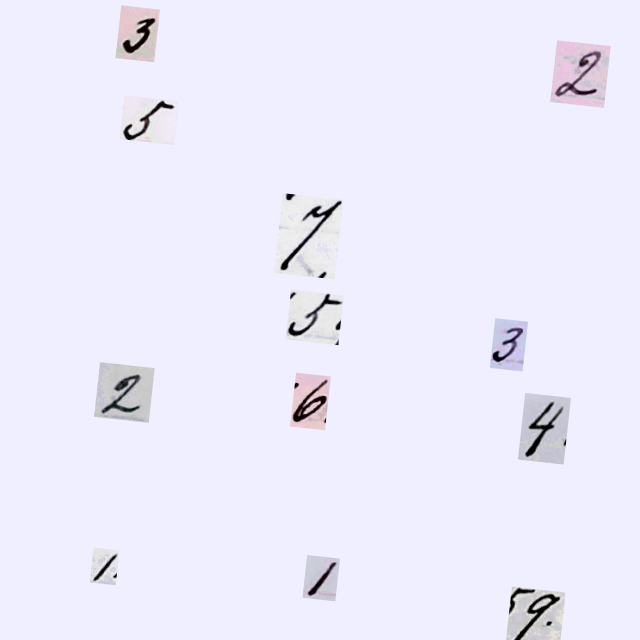 3
2
5
7
5
3
2
6
4
1
1
9